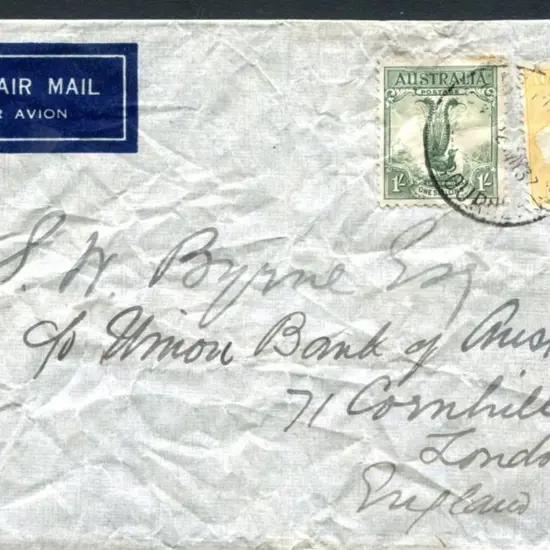 AIR MAIL
AVION
AUSTRALIA
POSTAGE
1/-
1/-
S. W. Byrne Esq
c/o Union Bank of Aus
71 Cornhill
Lond
England